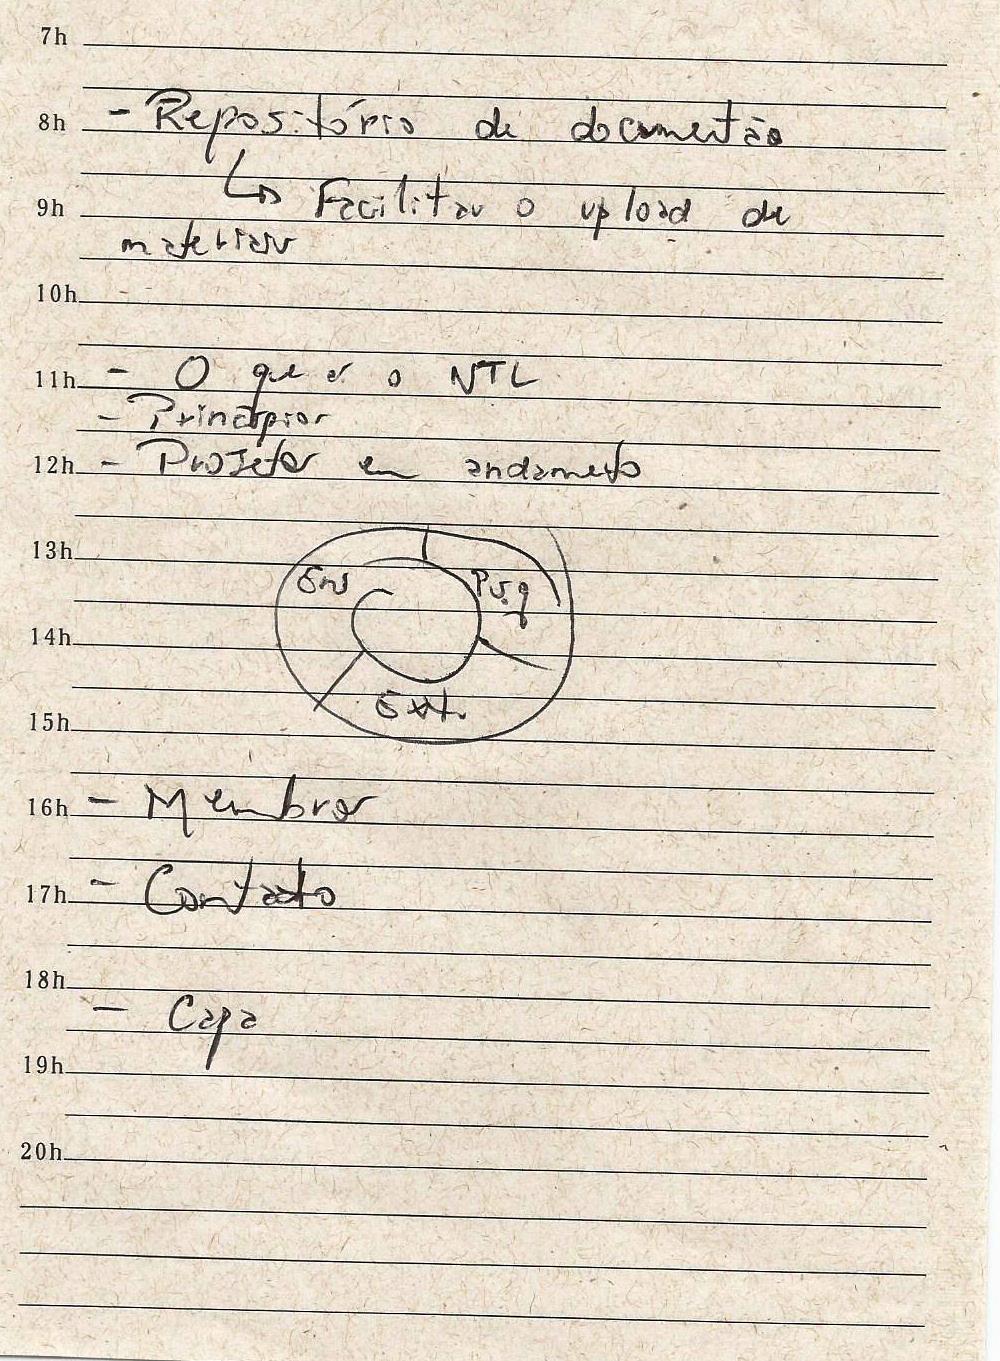 7h
8h - Repositório de documentão
9h ↳ Facilitar o upload de
materiais
10h
11h - O que é o NTL
- Princípios
12h - Projetos em andamento
13h
Ens Pesq
14h
Ext.
15h
16h - Membros
17h - Contato
18h
- Capa
19h
20h